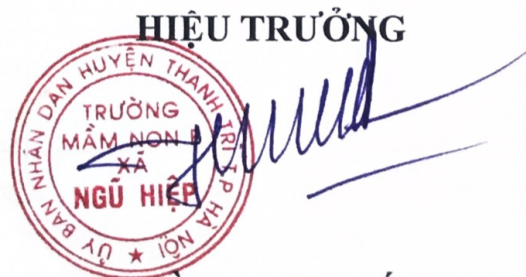 HIỆU TRƯỞNG
ỦY BAN NHÂN DÂN HUYỆN THANH TRÌ T.P HÀ NỘI
TRƯỜNG
MẦM NON B
XÃ
NGŨ HIỆP